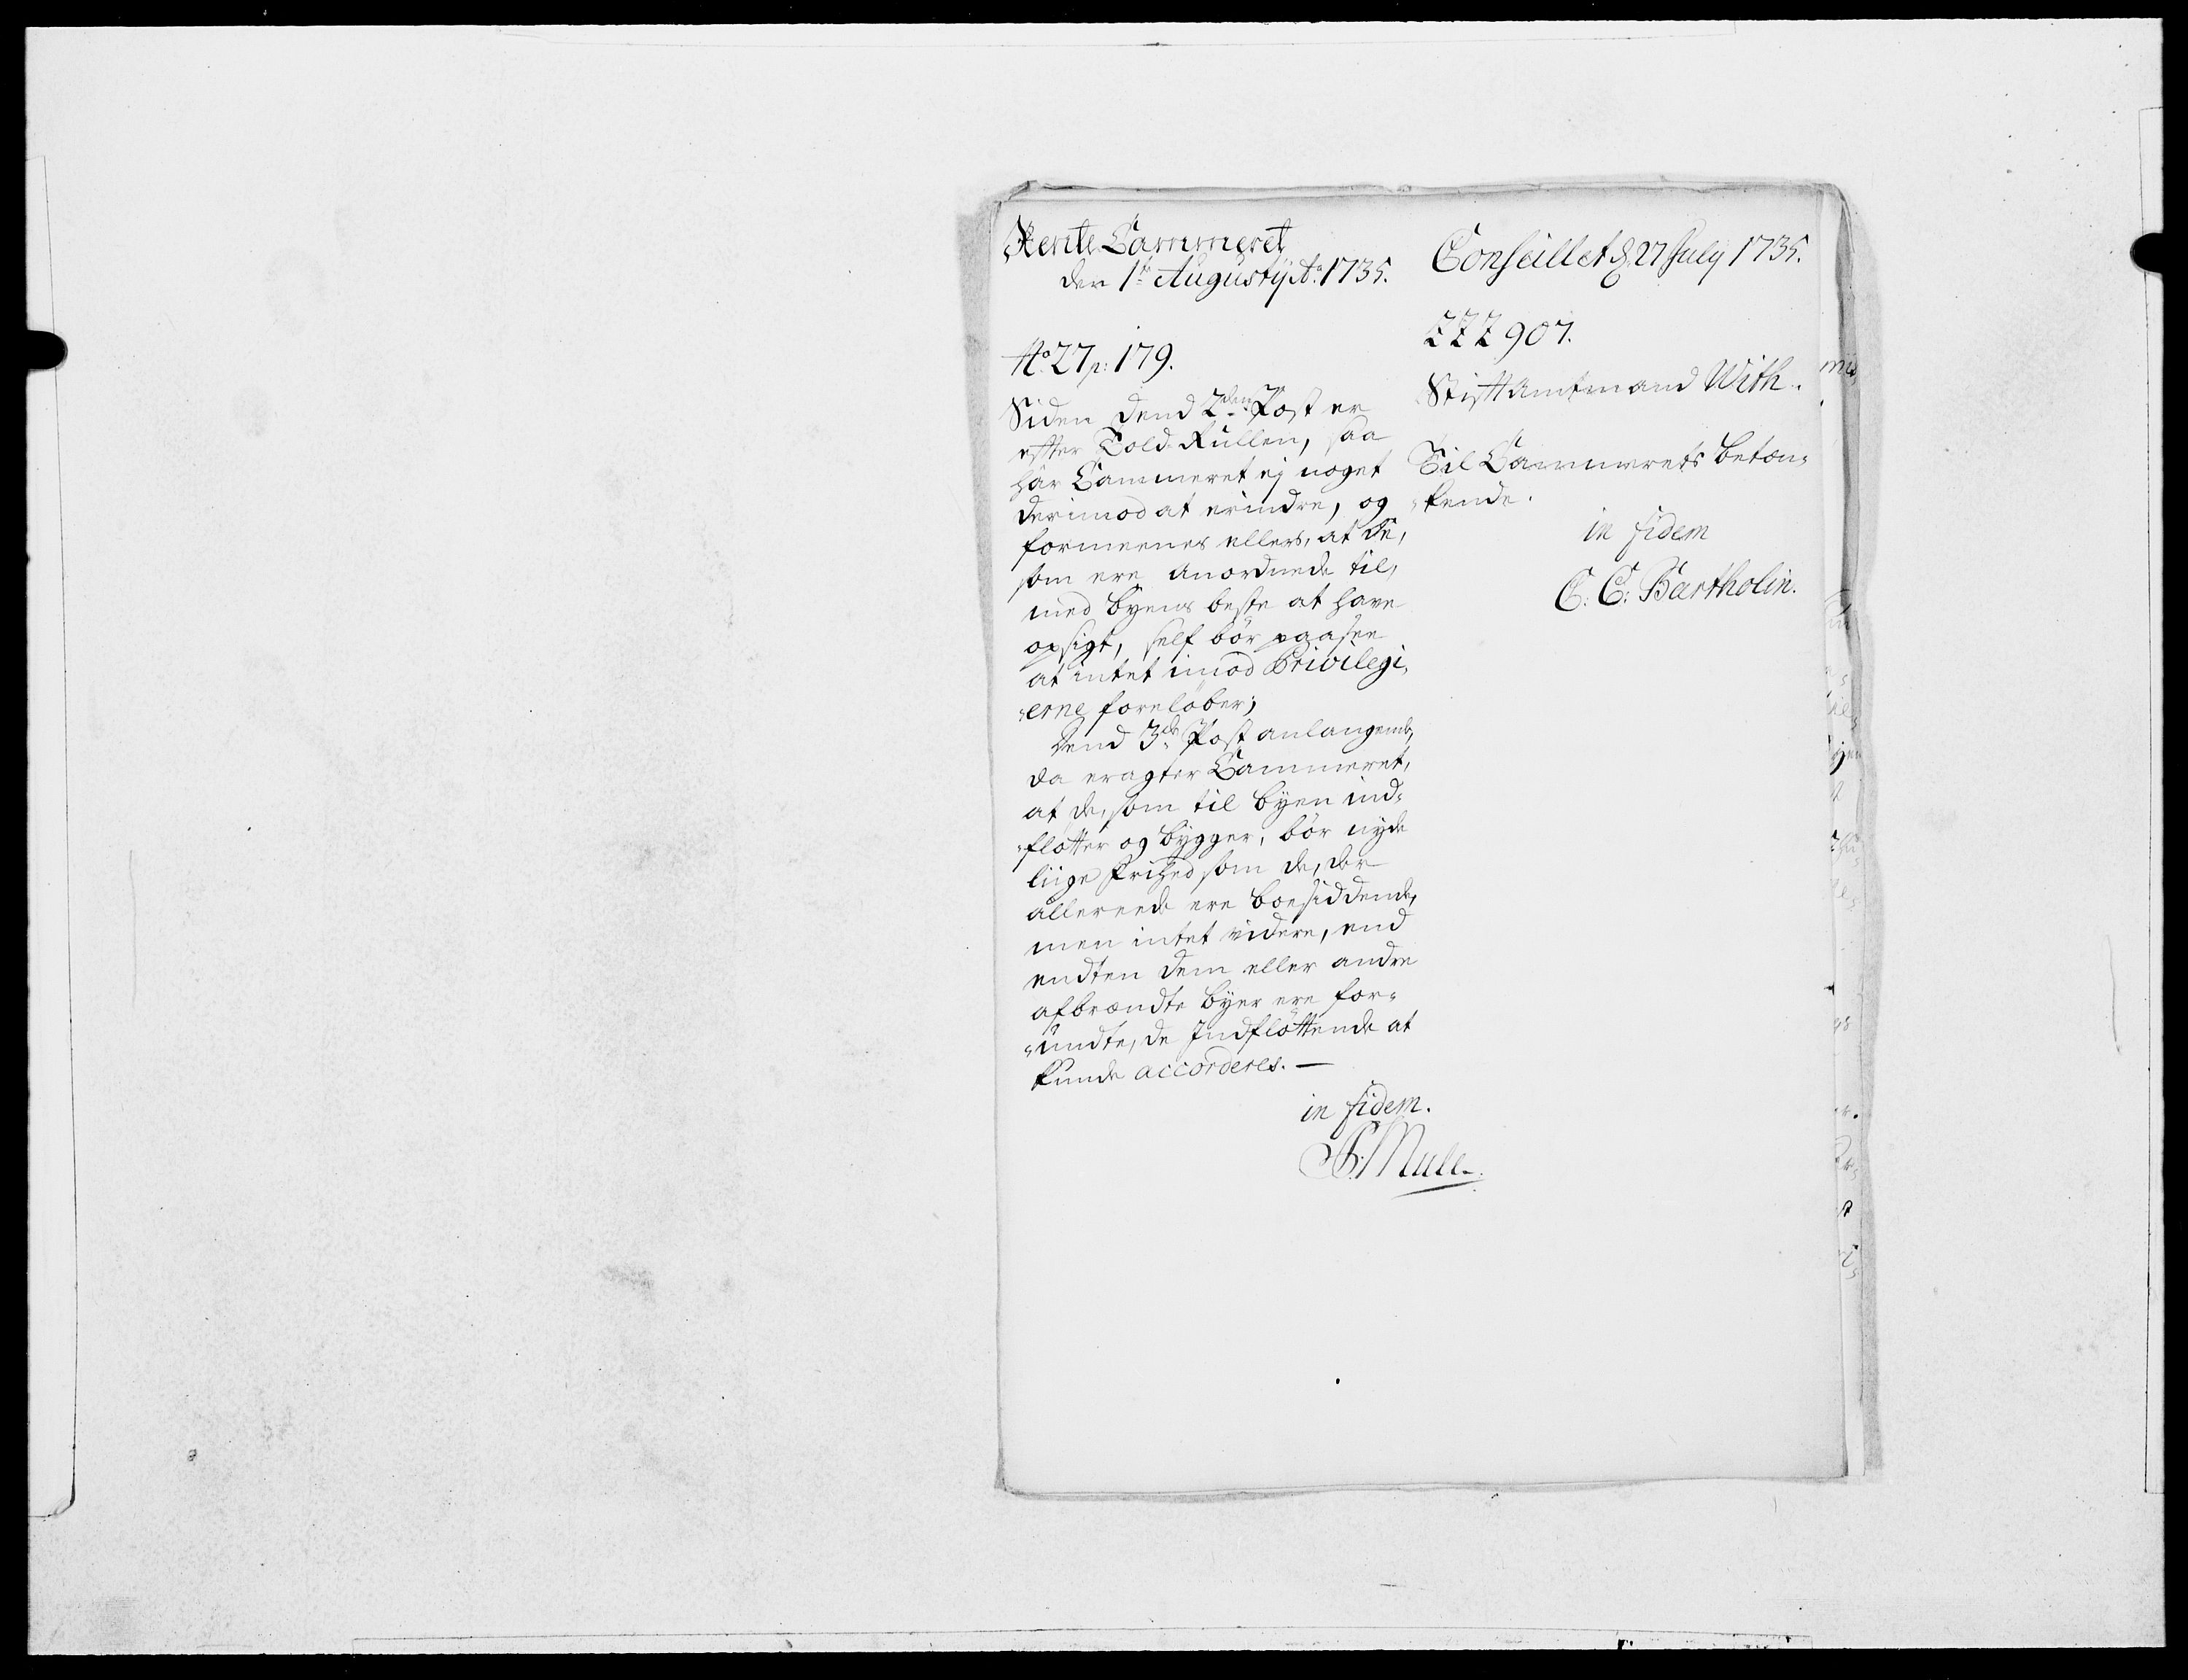 Rente Cammeret
den 1ste Augusty Ao. 1735.
No. 27 p: 179.
Siden dend 2den Post er
efter Told-Rullen, saa
har Cammeret ej noget
derimod at erindre, og
formeenes ellers, at de,
som ere anordnede til,
med byens beste at have
opsigt, self bör paasee
at intet imod Privilegi,
"erne foreløber;
Dend 3de Post anlangende,
da eragter Cammeret,
at de, som til byen ind-
"flötter og bygger, bör nyde
liige Frihed som de, der
allereede ere boesiddende,
men intet videre, end
endten dem eller andre
afbrændte byer ere for-
"undte, de Indflöttende at
kunde accorderes. —
in fidem.
Mule.
Conseillet d. 27 July 1735.
ZZZ 907.
Stiftamtmand With.
Til Cammerets betæn-
"kende.
in fidem
C: C: Bartholin.